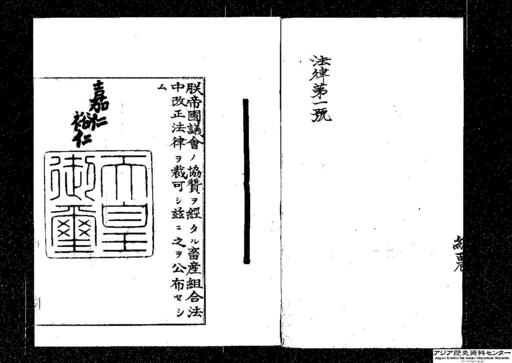 法律第一號
朕帝國議會ノ協贊ヲ經タル畜産組合法
中改正法律ヲ裁可シ茲ニ之ヲ公布セシ
ム
嘉仁
裕仁
天皇
御璽
アジア歴史資料センター
Japan Center for Asian Historical Records